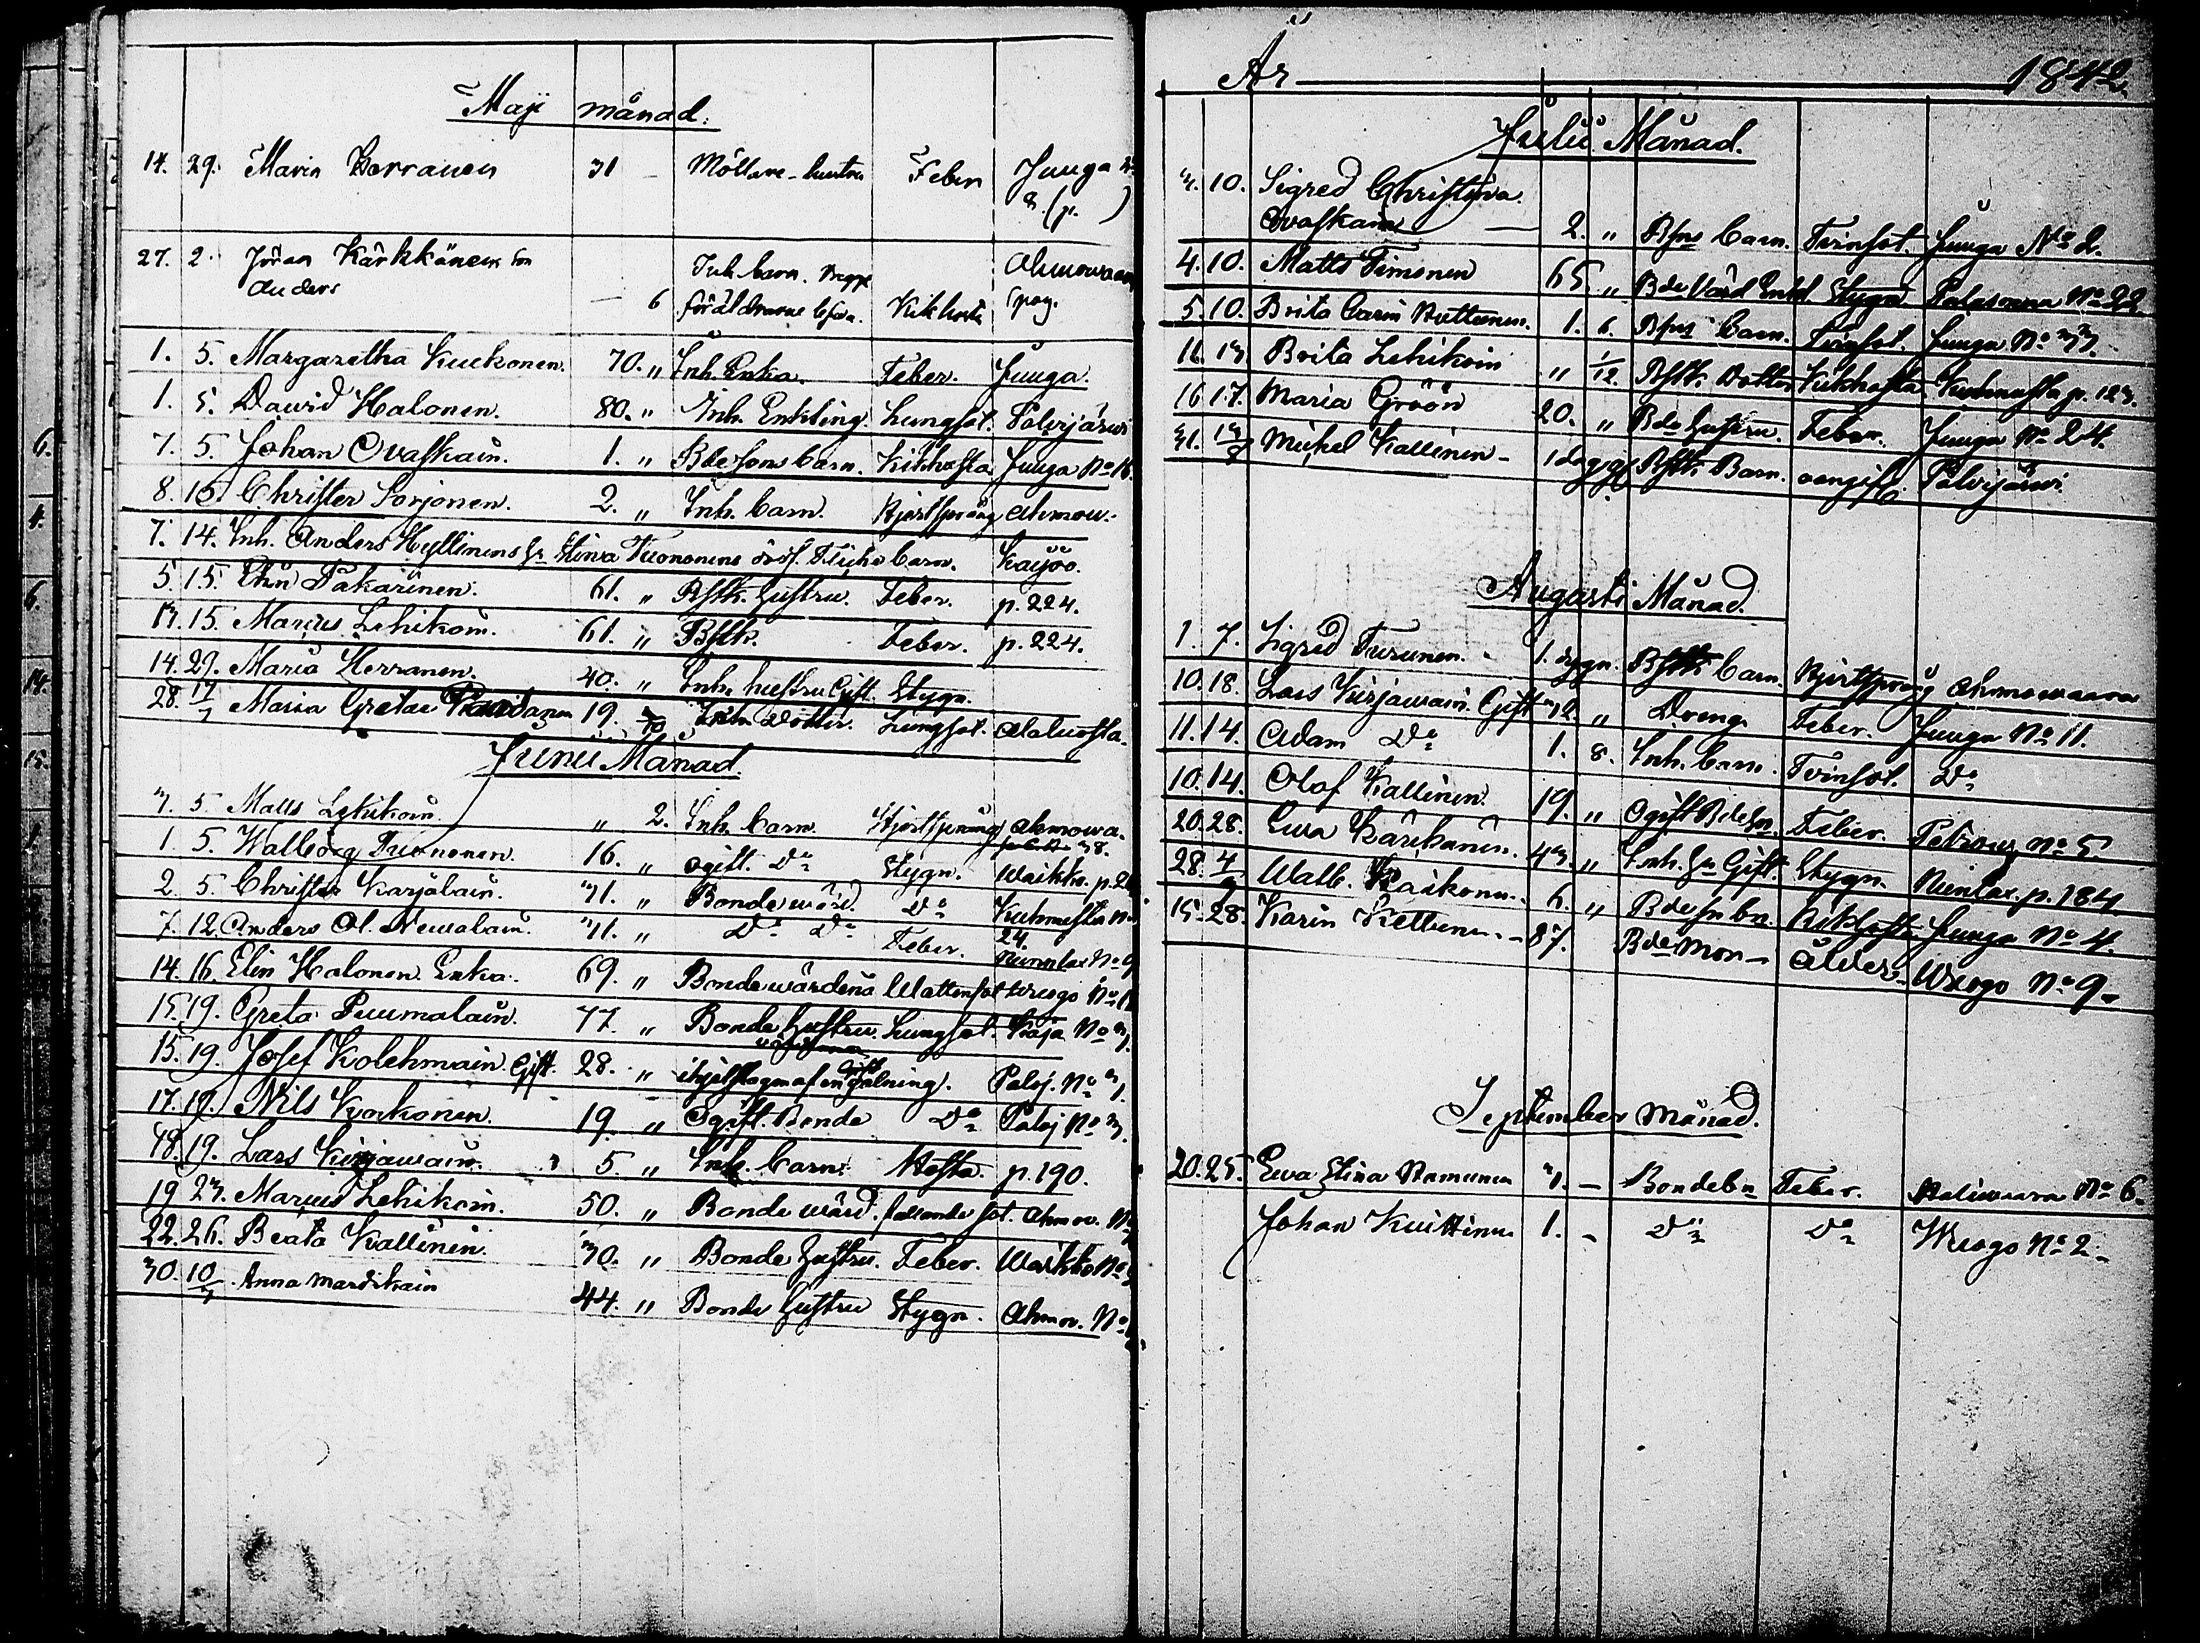 Maji månad.
14. 29. Maria Herranen 31 — Möllare-hustru Feber Juuga
8. (p. )
27. 2. Jöran Kärkkänens son Inh. barn. Ahmowaara
Anders — 6 föräldrarne Kikhosta pag.
1. 5. Margaretha Kuckonen. 70. " Inh. Enka. Feber. Juuga.
1. 5. David Halonen. 80. " Inh. Enkling. Lungsot. Polvijärvi
7. 5. Johan Ovaskain. 1. " Bde sons barn. Kikhosta Juuga No 16.
8. 15. Christer Sorjonen. 2. " Inh. barn. Hjertsprång Ahmow.
7. 14. Inh. Anders Hyttinens h. Stina Tuononens döf. Flicke barn. Kajoo.
5. 15. Elin Pakarinen. 61. " Bstk. hustru. Feber. p. 224.
13. 15. Marcus Lehikoin. 61. " Bstk. Feber. p. 224.
14. 29. Maria Herranen. 40. " Inh. hustru Gift. Stygn.
28. 17/7 Maria Greta 19. Inh. Dotter. Lungsot. Alaluosta.
Junii Månad.
3. 5. Matts Lehikoin. " 2. Inh. barn. Hjertsprång Ahmowa.
38.
1. 5. Walborg Tuononen. 16. " ogift. Do Stygn. Waikko. p.
2. 5. Christer Karjalain. 71. " Bonde wärd. Do Kuhnusta No
24.
7. 12. Anders Ol. Newalain. 71. " Do Do Feber. Nunnlax No 9
14. 16. Elin Halonen. Enka. 69. " Bonde wärdena Wattensot Wuogo No
15. 19. Greta Puumalain. 77. " Bonde hustru. Lungsot. Kaja No 3.
wärdinna
15. 19. Josef Kolehmain. Gift. 28. " ihjelslagen af en galning. Paloj. No 3.
17. 19. Nils Kaikonen. 19. " Ogift. Bonde Do Paloj No 3.
18. 19. Lars Kirjawain. 5. " Inh. barn. Hosta. p. 190.
19 23. Marcus Lehikoin. 50. " Bonde wärd. fallande sot. Ahmov. No
22. 26. Beata Kallinen. 30. " Bonde hustru. Feber. Waikko No
30. 10/7 Anna Martikain 44. " Bonde hustru Stygn. Ahmov. No
År 1842.
Julii Månad.
3. 10. Sigred Christina
Ovaskain — 2. " Bsns barn. Tvinsot. Juuga No 2.
4. 10. Matts Timonen 65. " Bde Värd Enkl. Stygn Polosvaara No 22
5. 10. Brita Carin Ruttunen. 1. 6. Bsns barn. Tvinsot. Juuga No 33.
11. 13. Brita Lehikoin " 1/12. Bstk. Dotter Kikhosta. Kuhnusta p. 123.
16 17. Maria Gröön 20. " Bde hustru. Feber. Juuga No 24.
31. 13/8 Michel Kallinen — 1 dygg. Bstk. Barn. oangift. Polvijärvi.
Augusti Månad.
1. 7. Sigred Turunen. 1. dygn. Bstk. barn. Hjertsprång Ahmowaara
10. 18. Lars Kirjawain. Gift 32. " Dreng. Feber. Juuga No 11.
11. 14. Adam Do 1. 8. Inh. barn. Tvinsot. Do
10. 14. Olof Kallinen. 19. " Ogift Bdeson. Feber. Petrovaara No 5.
20. 28. Ewa Kärkänen. 43. " Inh. hu Gift. Stygn. Nunlax. p. 184.
28. 4/9 Walb. Kaikonen. 6. " Bde sns bn. Kikhosta Juuga No 4.
15. 28. Karin Kettunen. — 87. Bde mor — Ålder. Wuogo No 9.
September månad.
20. 25. Ewa Stina Ramunen 3. — Bondebn Feber. No 6.
Johan Kuittinen 1. — Do Do Wuogo No 2.